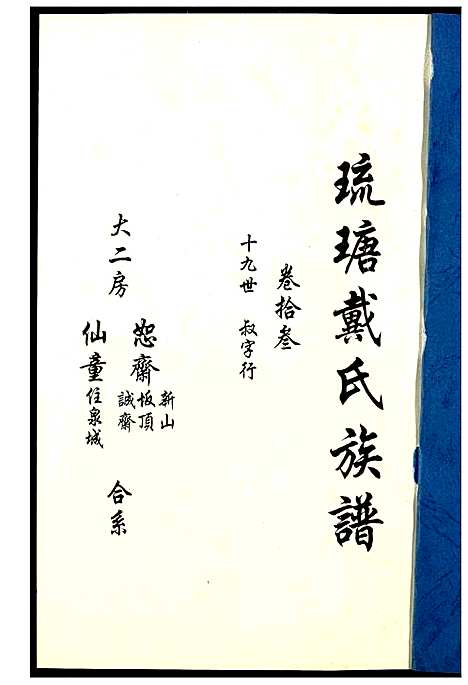 琉瑭戴氏族譜
卷拾叁
十九世 叔字行
大二房
恕齋
新山
坂頂
誠齋
仙童住泉城
合系